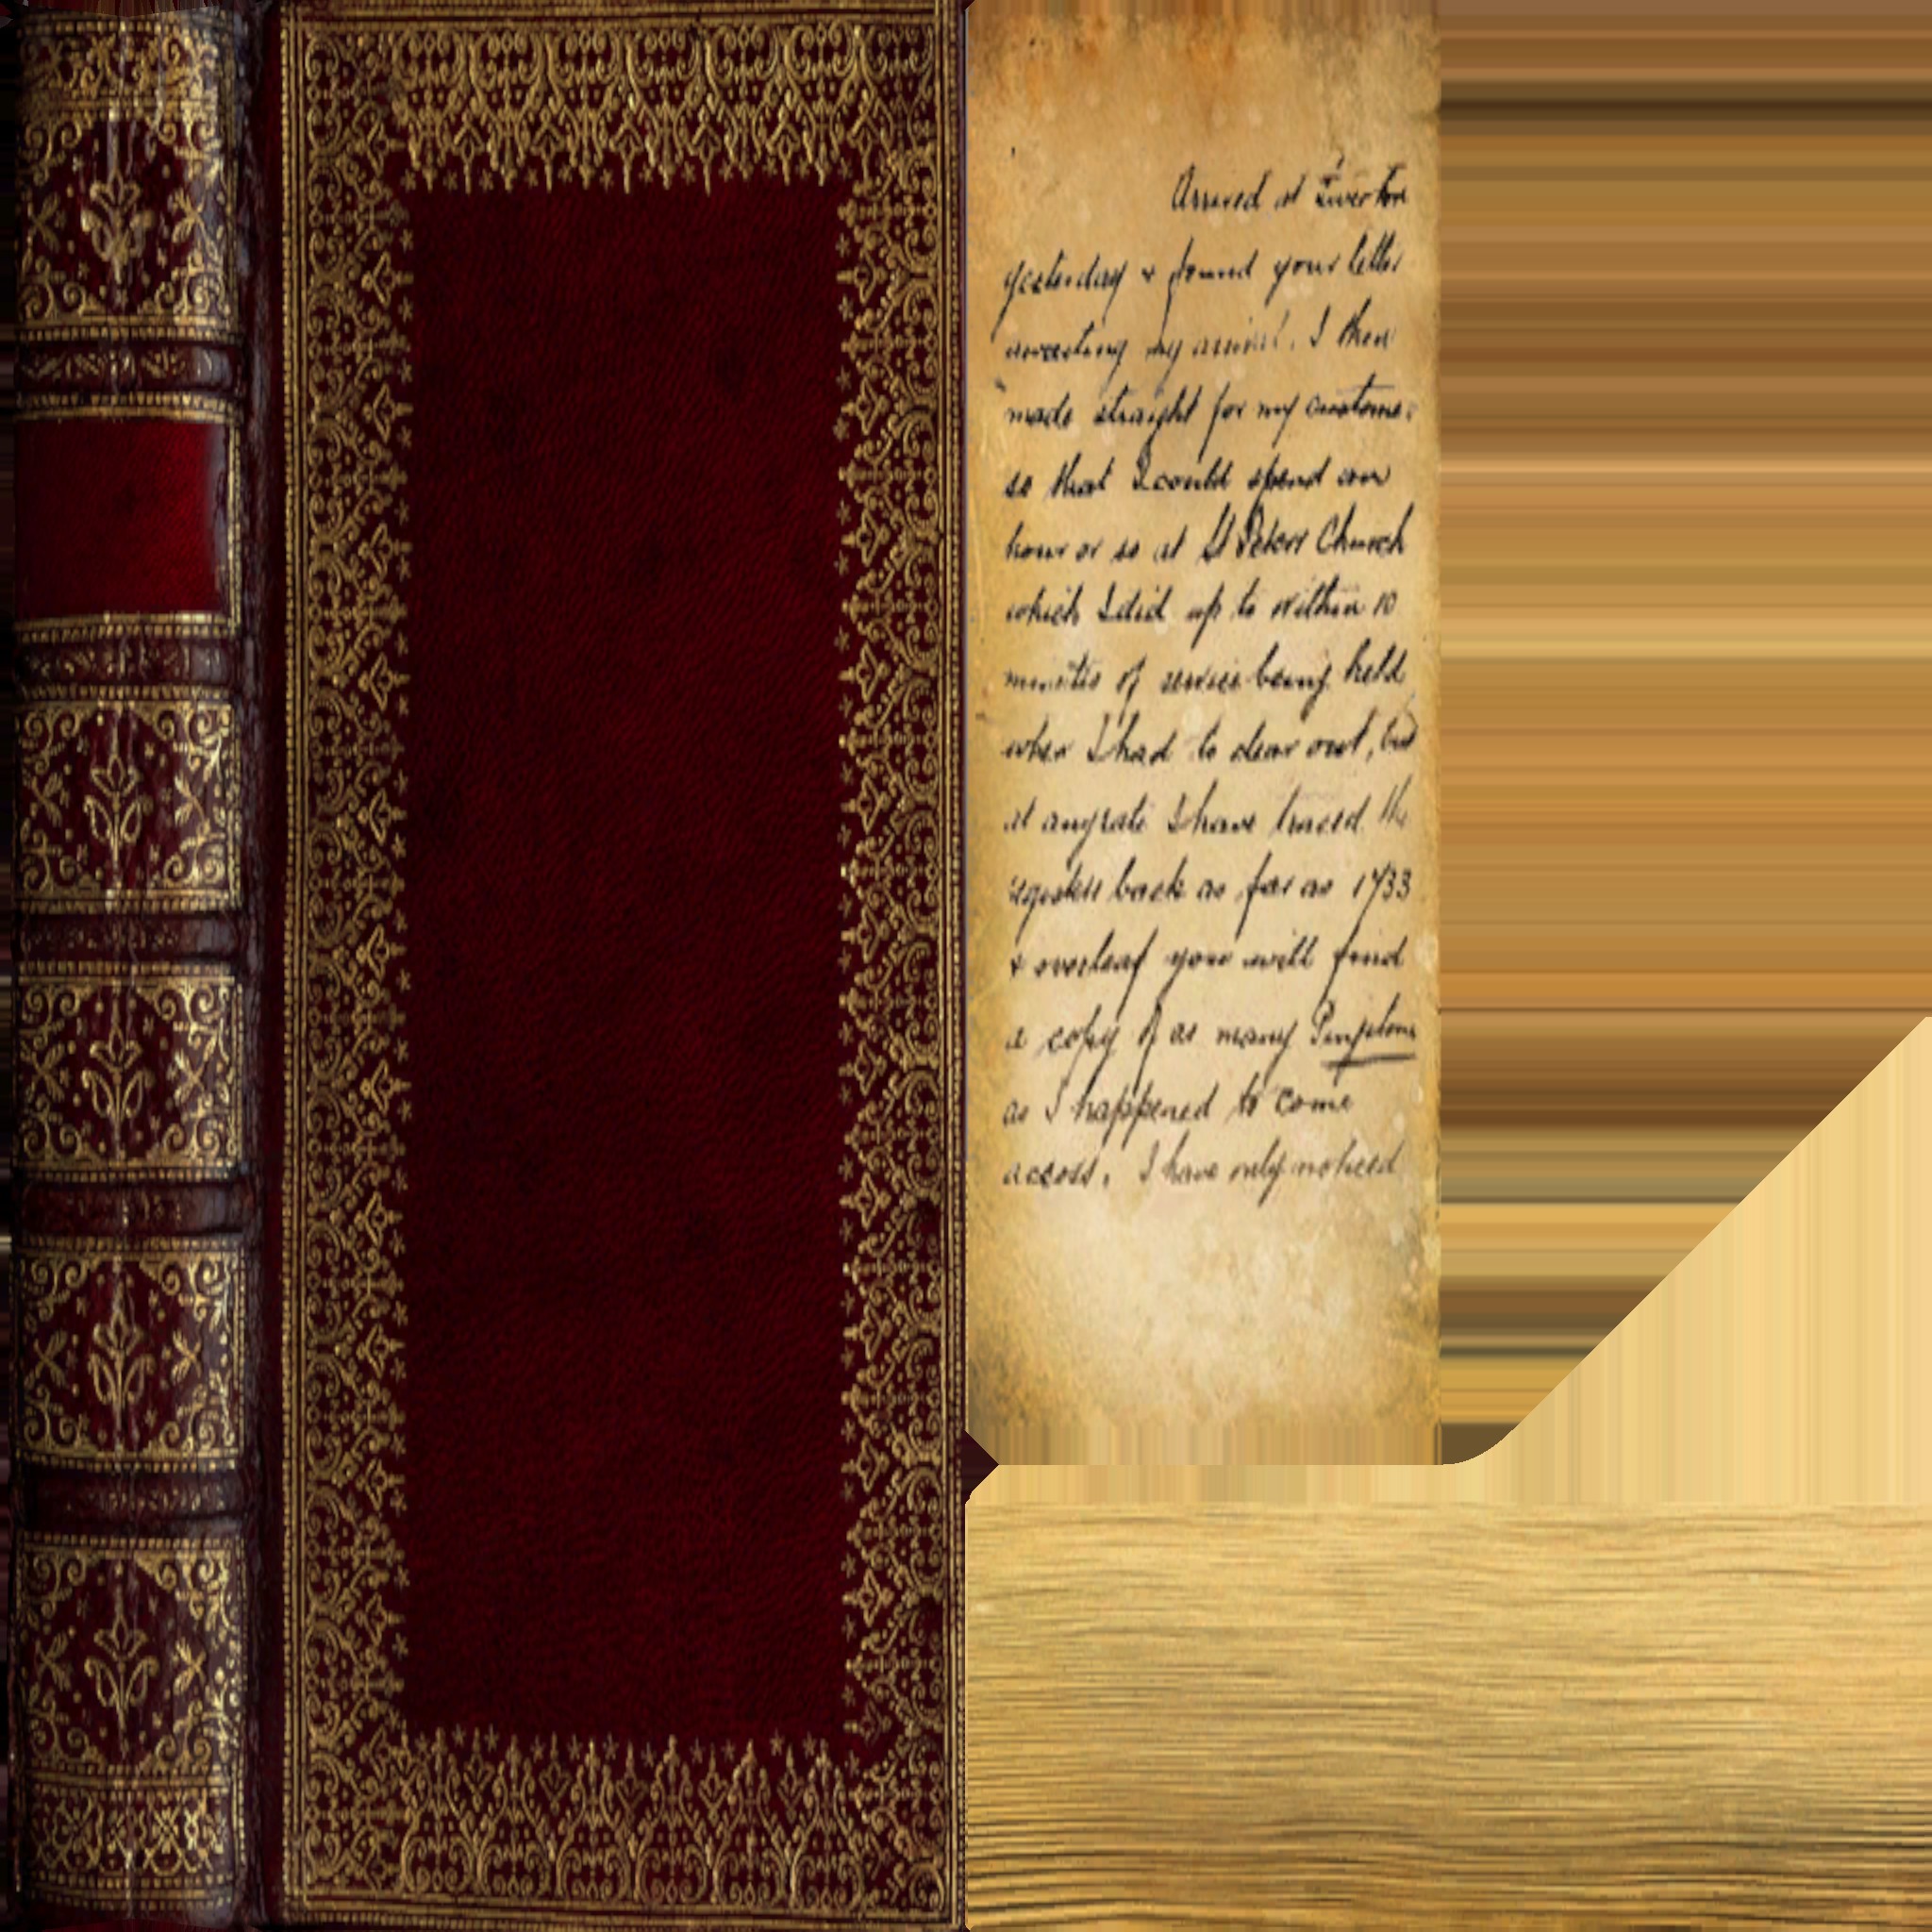 Arrived at Tiverton
yesterday & found your letter
awaiting my arrival. I then
made straight for my custome
so that I could spend an
hour or so at St Peters Church
which I did up to within 10
minutes of service being held
when I had to clear out, but
at anyrate I have traced the
registers back as far as 1733
& overleaf you will find
a copy of as many
as I happened to come
across. I have only noticed